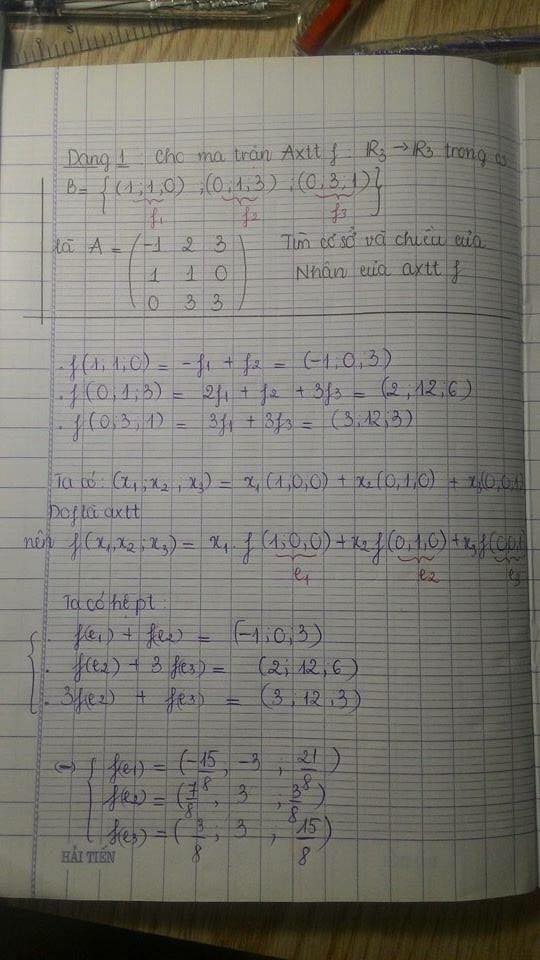 Dạng 1: Cho ma trận Axtt f: ℝ3 → ℝ3 trong cs
B = {(1;1;0) ; (0,1,3) ; (0,3,1)}
f1 f2 f3
là A = (-1 2 3
1 1 0
0 3 3)
Tìm cơ sở và chiều của
Nhân của axtt f
. f(1;1,0) = -f1 + f2 = (-1,0,3)
. f(0,1;3) = 2f1 + f2 + 3f3 = (2,12,6)
. f(0;3,1) = 3f1 + 3f3 = (3;12;3)
Ta có: (x1;x2,x3) = x1(1,0,0) + x2(0,1,0) + x3(0,0,1)
Do f là axtt
nên f(x1,x2;x3) = x1.f(1,0,0) + x2f(0,1,0) + x3f(0,0,1
e1 e2 e3
Ta có hệ pt:
{ . f(e1) + f(e2) = (-1;0;3)
. f(e2) + 3f(e3) = (2; 12;6)
. 3f(e2) + f(e3) = (3,12,3)
(=) { f(e1) = (-15/8; -3; 21/8)
f(e2) = (7/8, 3; 3/8)
f(e3) = (3/8; 3, 15/8)
HẢI TIẾN